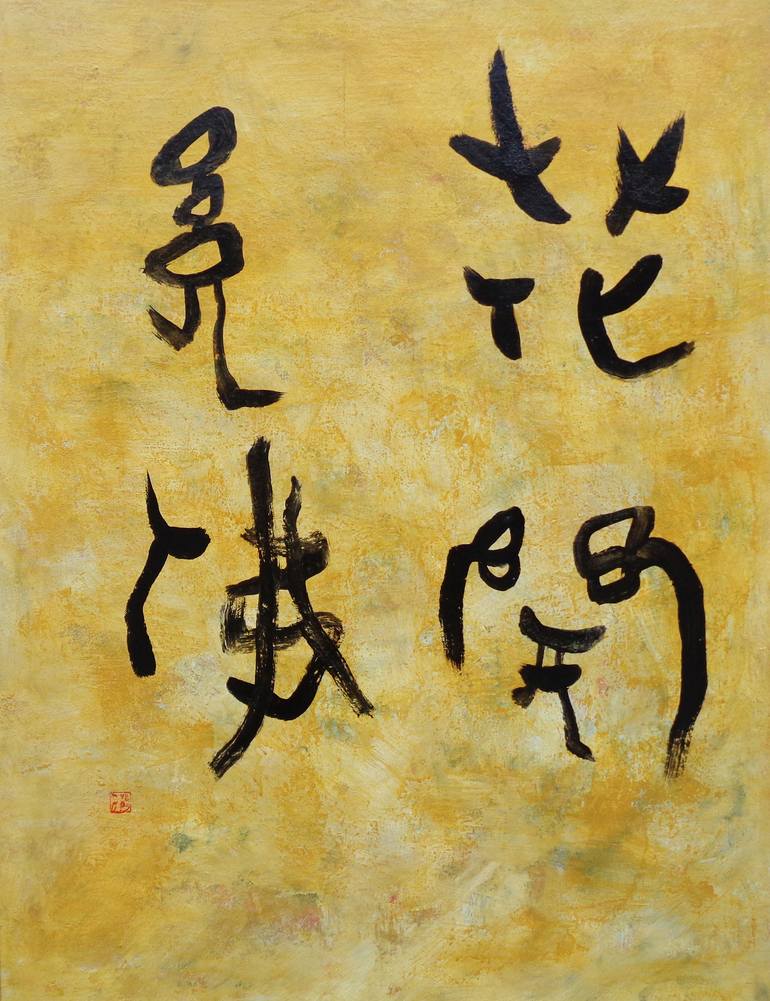 花開
見佛